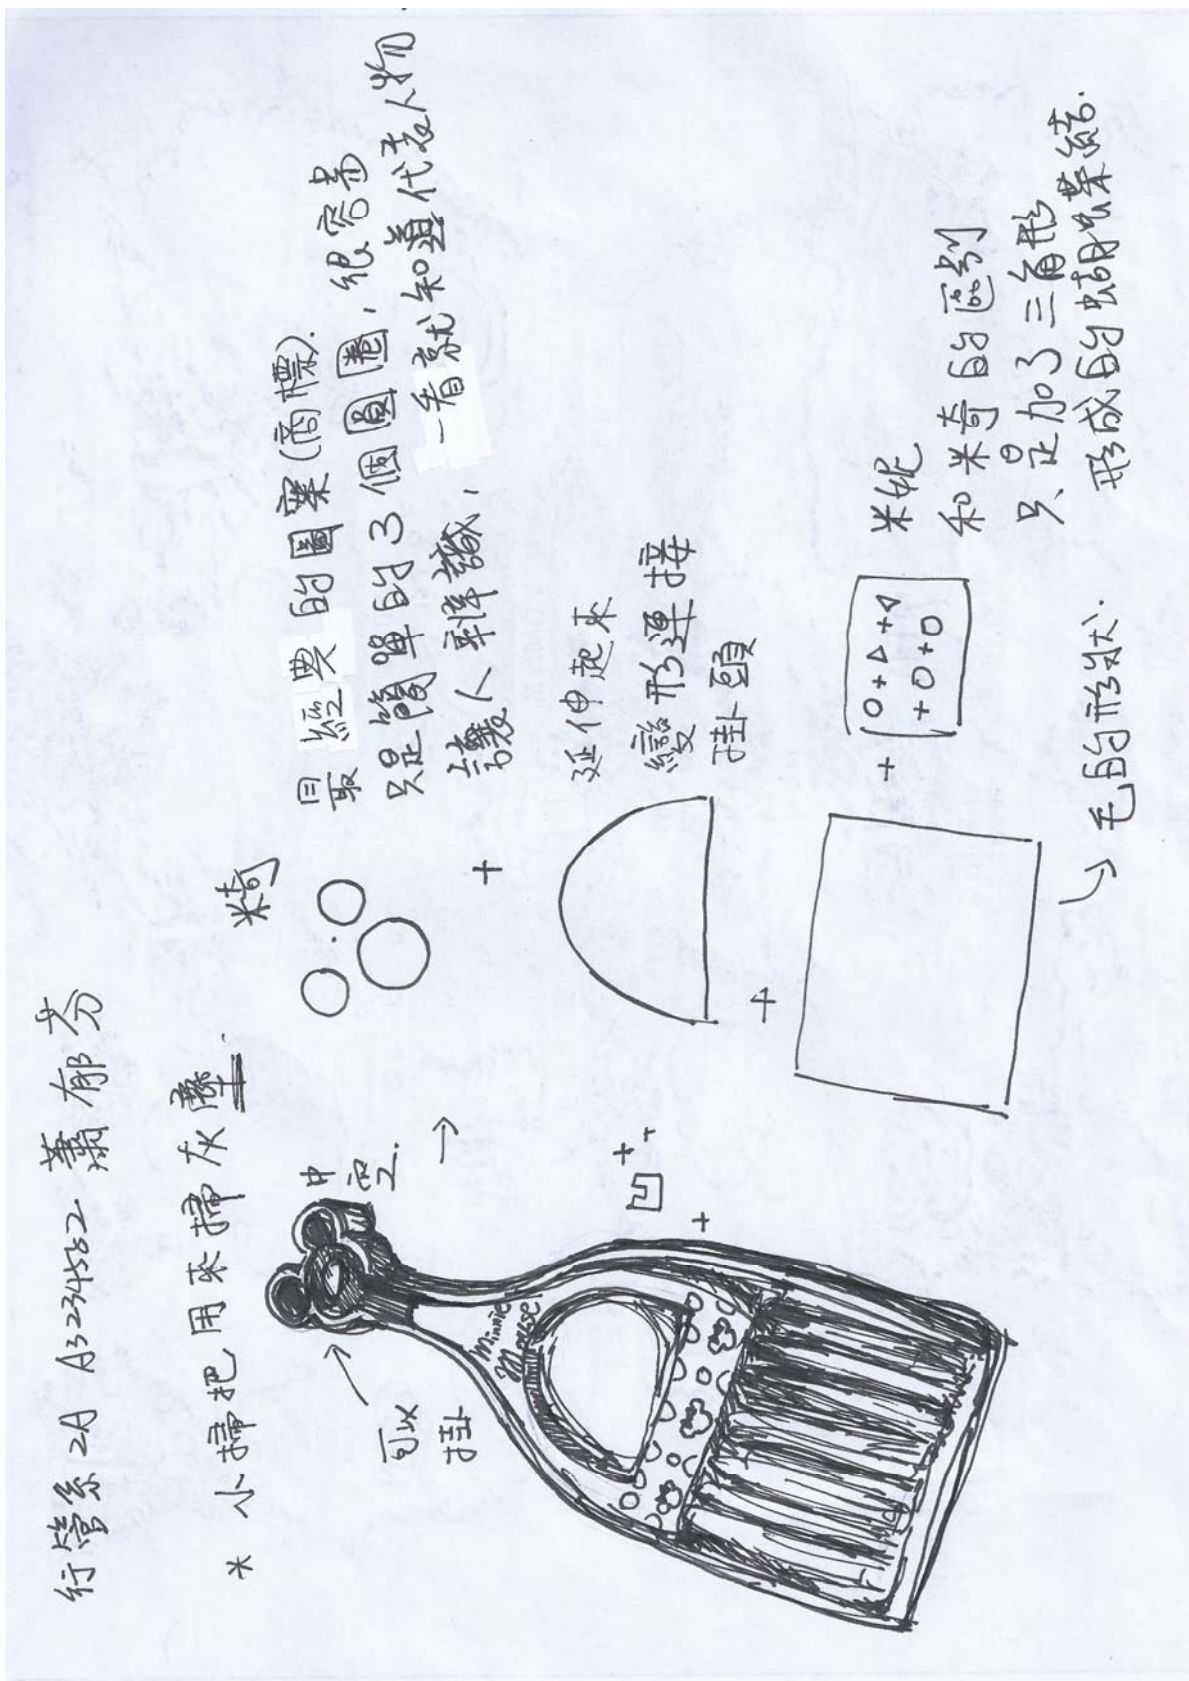 行管系 2A A3234582 蕭郁芬
* 小掃把 用來掃灰塵.
可以
掛
中
空.
Minnie
Mouse
米奇
最經典的圖案(商標).
只是簡單的3個圓圈,很容易
讓人辨識,一看就知道代表人物
+
延伸起來
變形連接
掛頭
+
+
米妮
和米奇的區別
只是加了三角形
形成的蝴蝶結.
毛的形狀.